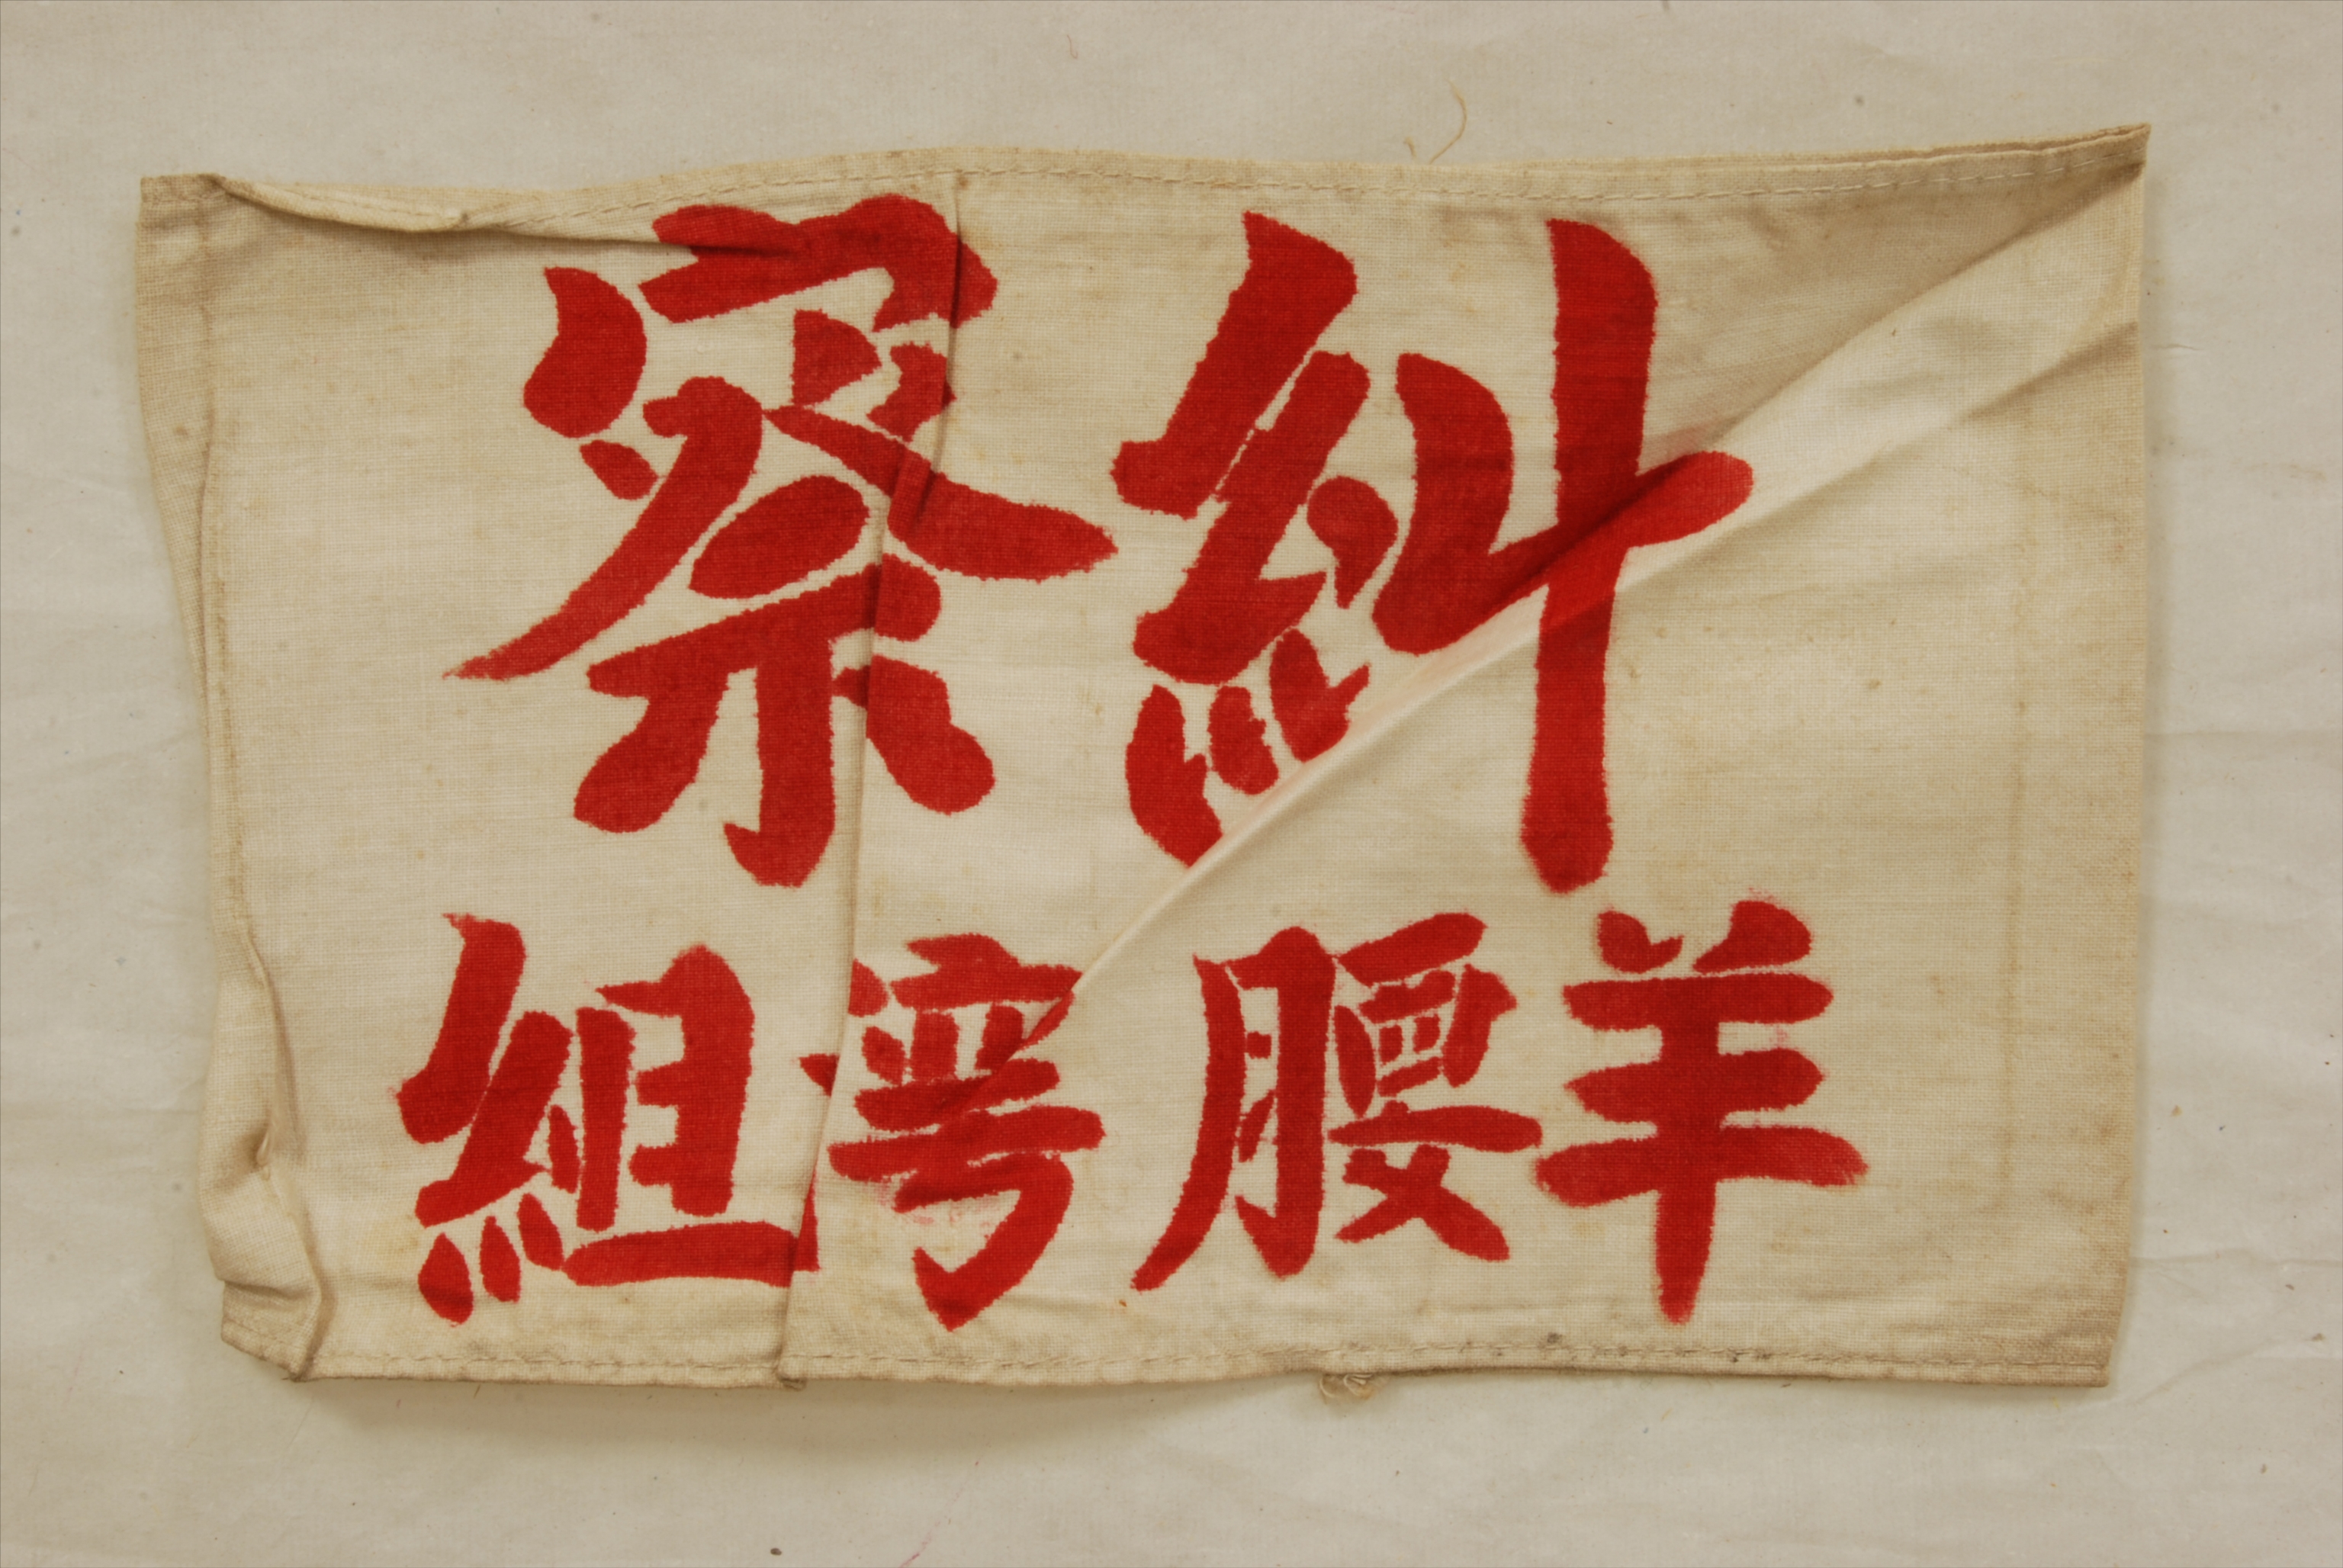 糾察
羊腰湾組